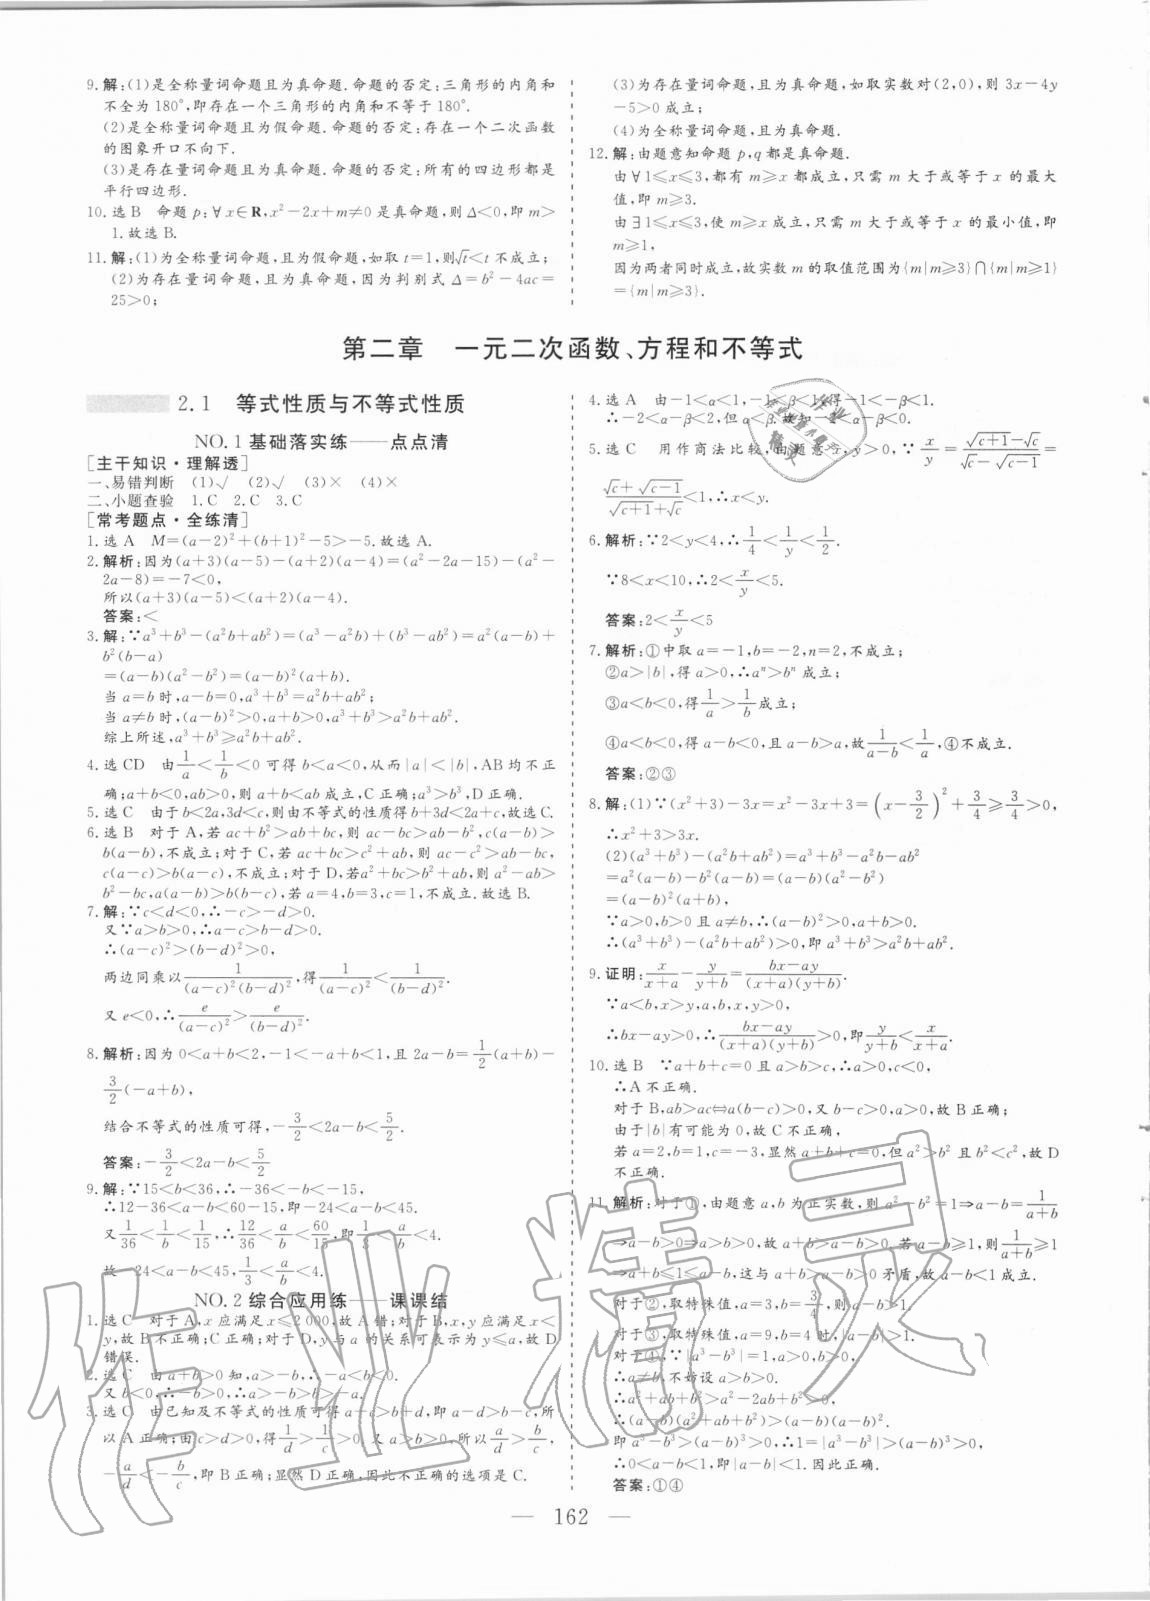 9. 解:(1)是全称量词命题且为真命题.命题的否定:三角形的内角和
不全为180°,即存在一个三角形的内角和不等于180°.
(2)是全称量词命题且为假命题.命题的否定:存在一个二次函数
的图象开口不向下.
(3)是存在量词命题且为真命题.命题的否定:所有的四边形都是
平行四边形.
10. 选 B 命题 p:∀x∈R,x²-2x+m≠0 是真命题,则 Δ<0,即 m>
1.故选 B.
11. 解:(1)为全称量词命题,且为假命题,如取 t=1,则√t<t 不成立;
(2)为存在量词命题,且为真命题,因为判别式 Δ=b²-4ac=
25>0;
(3)为存在量词命题,且为真命题,如取实数对(2,0),则 3x-4y
-5>0 成立;
(4)为全称量词命题,且为真命题.
12. 解:由题意知命题 p,q 都是真命题.
由∀1≤x≤3,都有 m≥x 都成立,只需 m 大于或等于 x 的最大
值,即 m≥3.
由∃1≤x≤3,使 m≥x 成立,只需 m 大于或等于 x 的最小值,即
m≥1,
因为两者同时成立,故实数 m 的取值范围为{m|m≥3}∩{m|m≥1}
={m|m≥3}.
第二章 一元二次函数、方程和不等式
2.1 等式性质与不等式性质
NO.1 基础落实练——点点清
[主干知识·理解透]
一、易错判断 (1)√ (2)√ (3)× (4)×
二、小题查验 1.C 2.C 3.C
[常考题点·全练清]
1. 选 A M=(a-2)²+(b+1)²-5>-5.故选 A.
2. 解析:因为(a+3)(a-5)-(a+2)(a-4)=(a²-2a-15)-(a²-
2a-8)=-7<0,
所以(a+3)(a-5)<(a+2)(a-4).
答案:<
3. 解:∵a³+b³-(a²b+ab²)=(a³-a²b)+(b³-ab²)=a²(a-b)+
b²(b-a)
=(a-b)(a²-b²)=(a-b)²(a+b).
当 a=b 时,a-b=0,a³+b³=a²b+ab²;
当 a≠b 时,(a-b)²>0,a+b>0,a³+b³>a²b+ab².
综上所述,a³+b³≥a²b+ab².
4. 选 CD 由 1/a<1/b<0 可得 b<a<0,从而|a|<|b|,AB 均不正
确;a+b<0,ab>0,则 a+b<ab 成立,C 正确;a³>b³,D 正确.
5. 选 C 由于 b<2a,3d<c,则由不等式的性质得 b+3d<2a+c,故选 C.
6. 选 B 对于 A,若 ac+b²>ab+bc,则 ac-bc>ab-b²,c(a-b)>
b(a-b),不成立;对于 C,若 ac+bc>c²+ab,则 ac-c²>ab-bc,
c(a-c)>b(a-c),不成立;对于 D,若 a²+bc>b²+ab,则 a²-ab>
b²-bc,a(a-b)>b(b-c),若 a=4,b=3,c=1,不成立.故选 B.
7. 解:∵c<d<0,∴-c>-d>0.
又∵a>b>0,∴a-c>b-d>0.
∴(a-c)²>(b-d)²>0,
两边同乘以 1/((a-c)²(b-d)²),得 1/(a-c)²<1/(b-d)².
又 e<0,∴e/(a-c)²>e/(b-d)².
8. 解析:因为 0<a+b<2,-1<-a+b<1,且 2a-b=1/2(a+b)-
3/2(-a+b),
结合不等式的性质可得,-3/2<2a-b<5/2.
答案:-3/2<2a-b<5/2
9. 解:∵15<b<36,∴-36<-b<-15,
∴12-36<a-b<60-15,即-24<a-b<45.
又 1/36<1/b<1/15,∴12/36<a/b<60/15,即 1/3<a/b<4.
故-24<a-b<45,1/3<a/b<4.
NO.2 综合应用练——课课结
1. 选 C 对于 A,x 应满足 x≤2 000,故 A 错;对于 B,x,y 应满足 x<
y,故 B 不正确;C 正确;对于 D,y 与 a 的关系可表示为 y≤a,故 D
错误.
2. 选 C 由 a+b>0 知,a>-b,∴-a<b<0.
又 b<0,∴-b>0,∴a>-b>b>-a.
3. 选 C 由已知及不等式的性质可得 a+c>b+d,即 a-d>b-c,所
以 A 正确;由 c>d>0,得 1/d>1/c>0,又 a>b>0,所以 a/d>b/c,
-a/d<-b/c,即 B 正确;显然 D 正确,因此不正确的选项是 C.
4. 选 A 由-1<α<1,-1<β<1,得-1<-β<1.
∴-2<α-β<2,但 α<β.故知 α-β<0.
5. 选 C 用作商法比较,由题意 x,y>0,∵x/y=(√(c+1)-√c)/(√c-√(c-1))=
(√c+√(c-1))/(√(c+1)+√c)<1,∴x<y.
6. 解析:∵2<y<4,∴1/4<1/y<1/2.
∵8<x<10,∴2<x/y<5.
答案:2<x/y<5
7. 解析:①中取 a=-1,b=-2,n=2,不成立;
②a>|b|,得 a>0,∴aⁿ>bⁿ 成立;
③a<b<0,得 1/a>1/b 成立;
④a<b<0,得 a-b<0,且 a-b>a,故 1/(a-b)<1/a,④不成立.
答案:②③
8. 解:(1)∵(x²+3)-3x=x²-3x+3=(x-3/2)²+3/4≥3/4>0,
∴x²+3>3x.
(2)(a³+b³)-(a²b+ab²)=a³+b³-a²b-ab²
=a²(a-b)-b²(a-b)=(a-b)(a²-b²)
=(a-b)²(a+b),
∵a>0,b>0 且 a≠b,∴(a-b)²>0,a+b>0.
∴(a³+b³)-(a²b+ab²)>0,即 a³+b³>a²b+ab².
9. 证明:x/(x+a)-y/(y+b)=(bx-ay)/((x+a)(y+b)).
∵a<b,x>y,a,b,x,y>0,
∴bx-ay>0,∴(bx-ay)/((x+a)(y+b))>0,即 y/(y+b)<x/(x+a).
10. 选 B ∵a+b+c=0 且 a>b>c,∴a>0,c<0,
∴A 不正确.
对于 B,ab>ac⇔a(b-c)>0,又 b-c>0,a>0,故 B 正确;
由于|b|有可能为 0,故 C 不正确,
若 a=2,b=1,c=-3,显然 a+b+c=0,但 a²>b² 且 b²<c²,故 D
不正确.
11. 解析:对于①,由题意 a,b 为正实数,则 a²-b²=1⇒a-b=1/(a+b)
⇒a-b>0⇒a>b>0,故 a+b>a-b>0.若 a-b≥1,则 1/(a+b)≥1
⇒a+b≤1≤a-b,这与 a+b>a-b>0 矛盾,故 a-b<1 成立.
对于②,取特殊值,a=3,b=3/4,则 a-b>1.
对于③,取特殊值,a=9,b=4 时,|a-b|>1.
对于④,∵|a³-b³|=1,a>0,b>0,
∴a≠b,不妨设 a>b>0.
∴a²+ab+b²>a²-2ab+b²>0,
∴(a-b)(a²+ab+b²)>(a-b)(a-b)².
即 a³-b³>(a-b)³>0,∴1=|a³-b³|>(a-b)³>0,
∴0<a-b<1,即|a-b|<1.因此正确.
答案:①④
— 162 —
作业精灵